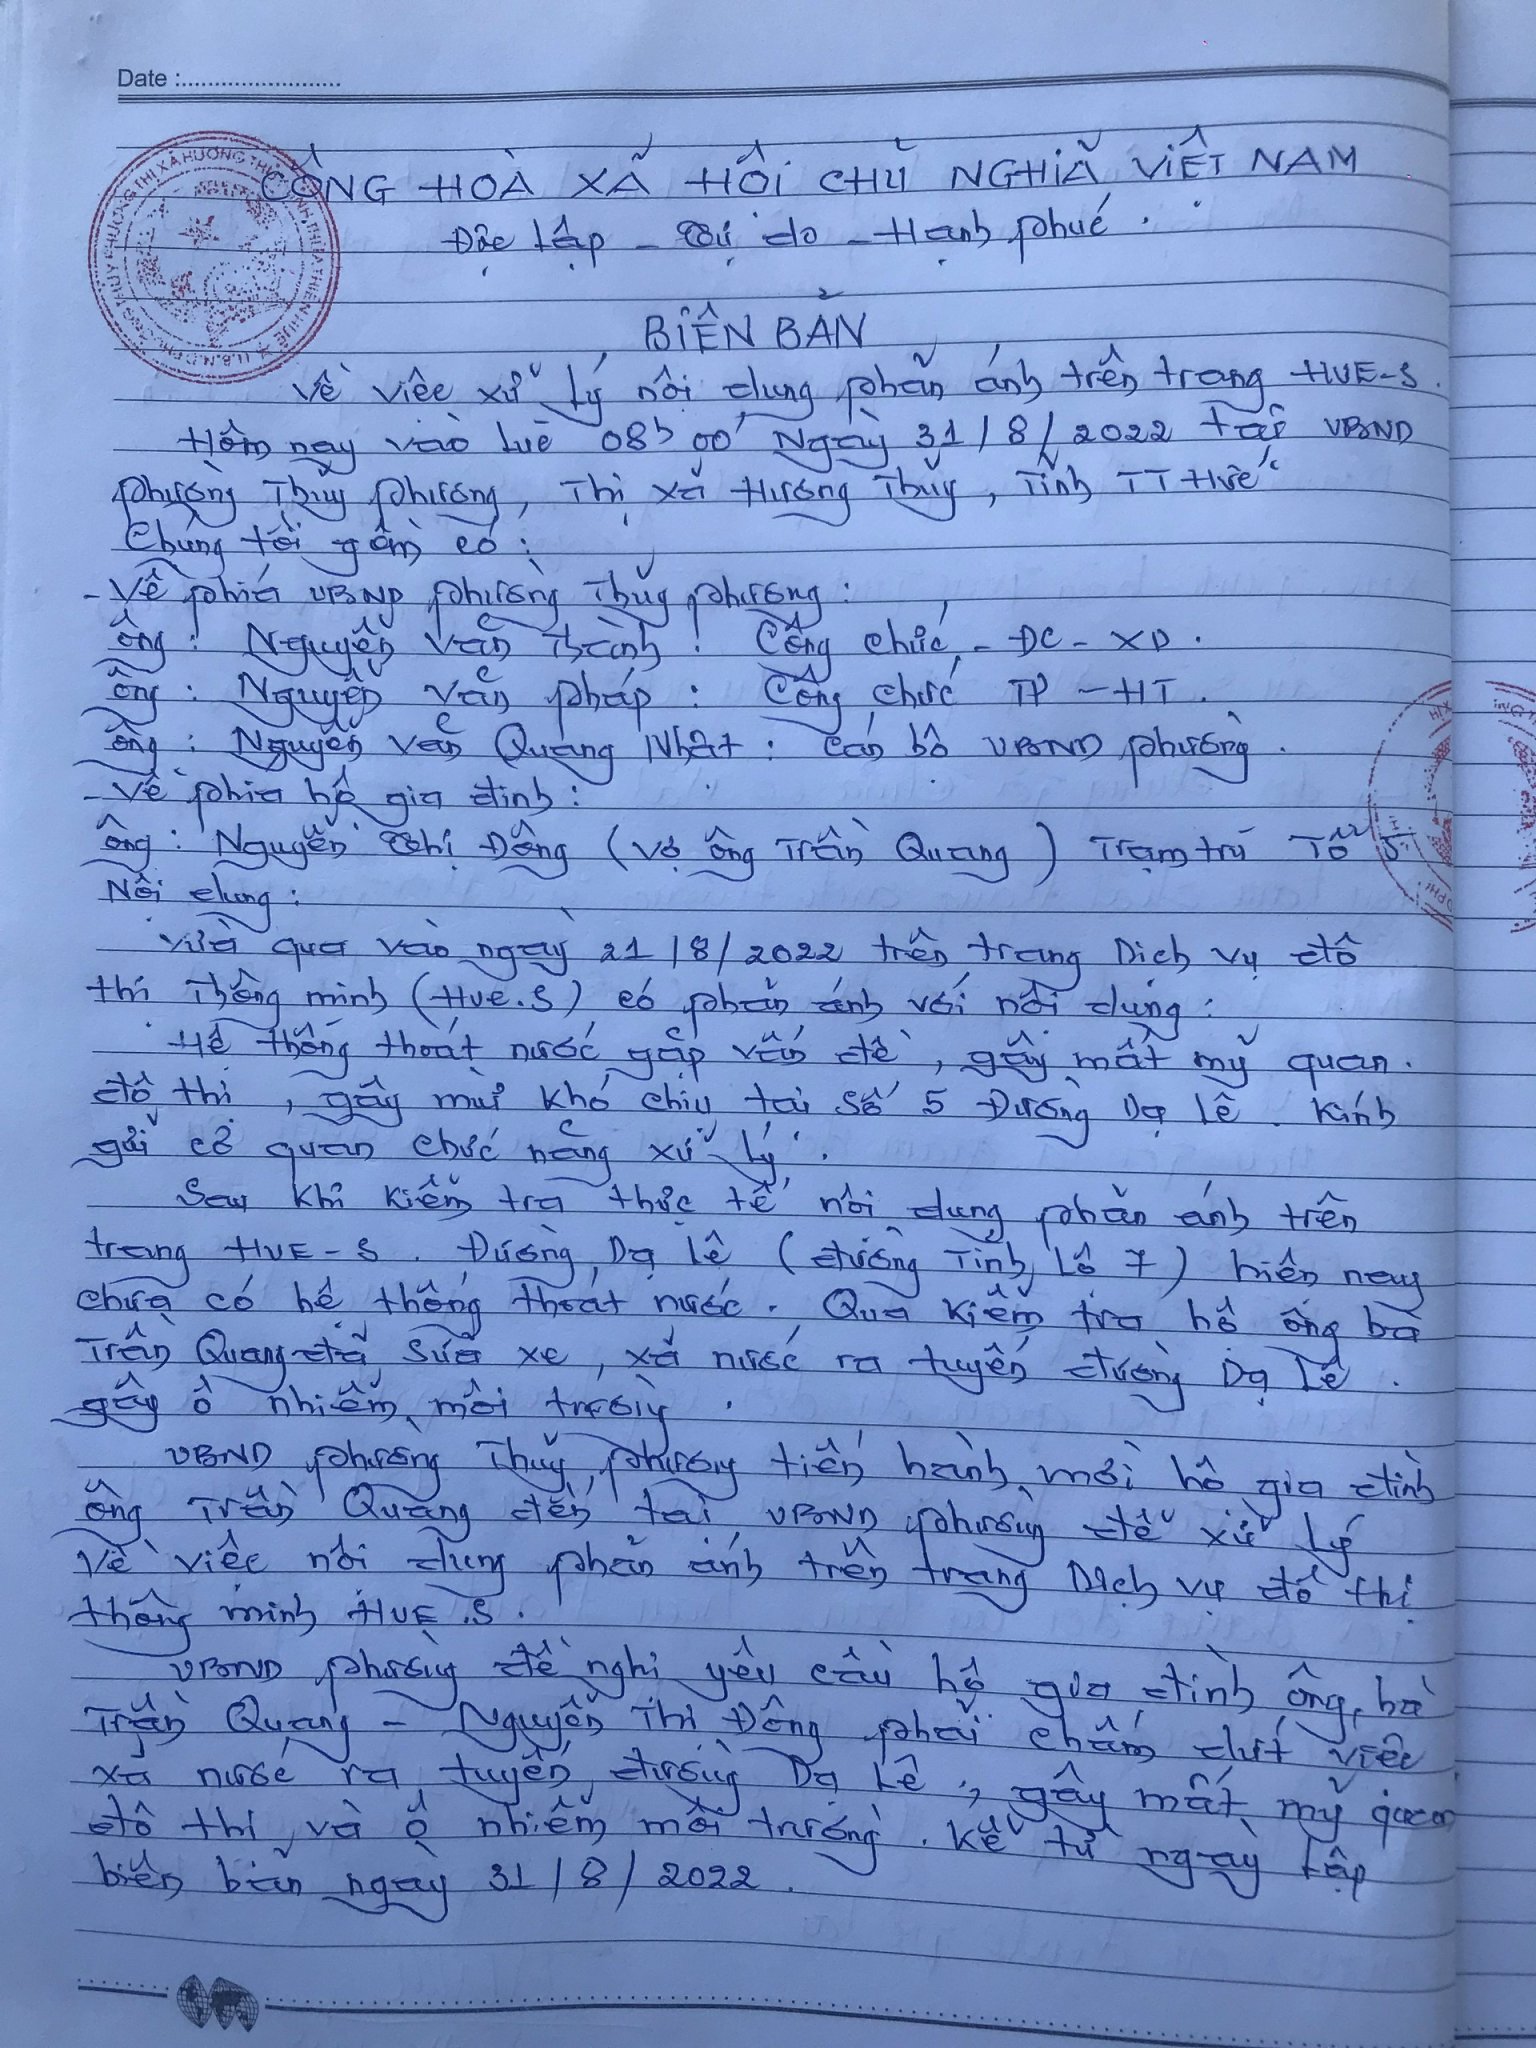 Date :
CÔNG HOÀ XÃ HỘI CHỦ NGHĨA VIỆT NAM
Độc lập - Tự do - Hạnh phúc.
BIÊN BẢN
Về việc xử lý nội dung phản ánh trên trang HUE-S.
Hôm nay vào lúc 08h00' Ngày 31/8/2022 tại UBND
phường Thủy phương, Thị xã Hương Thủy, Tỉnh TT Huế
Chúng tôi gồm có:
- Về phía UBND phường Thủy phương:
Ông: Nguyễn Văn Thành: Công chức - ĐC - XD.
Ông: Nguyễn Văn Pháp: Công chức TP - HT.
Ông: Nguyễn Văn Quang Nhật: Cán bộ UBND phường.
- Về phía hộ gia đình:
Ông: Nguyễn Thị Đông (vợ ông Trần Quang) Tạm trú Tổ 5
Nội dung:
Vừa qua vào ngày 21/8/2022 trên trang Dịch vụ đô
thị Thông minh (Hue.S) có phản ánh với nội dung:
Hệ thống thoát nước gặp vấn đề, gây mất mỹ quan.
đô thị, gây mùi khó chịu tại số 5 Đường Dạ Lê. Kính
gửi cơ quan chức năng xử lý.
Sau khi kiểm tra thực tế nội dung phản ánh trên
trang HUE-S. Đường Dạ Lê (đường Tỉnh Lộ 7) hiện nay
chưa có hệ thống thoát nước. Qua kiểm tra hộ ông bà
Trần Quang đã sửa xe, xả nước ra tuyến đường Dạ Lê.
gây ô nhiễm môi trường.
UBND phường Thủy phương tiến hành mời hộ gia đình
ông Trần Quang đến tại UBND phường để xử lý
Về việc nội dung phản ánh trên trang Dịch vụ đô thị
thông minh HUE.S.
UBND phường đề nghị yêu cầu hộ gia đình ông, bà
Trần Quang - Nguyễn Thị Đông phải chấm dứt việc
xả nước ra tuyến đường Dạ Lê, gây mất mỹ quan
đô thị và ô nhiễm môi trường. Kể từ ngày lập
biên bản ngày 31/8/2022.